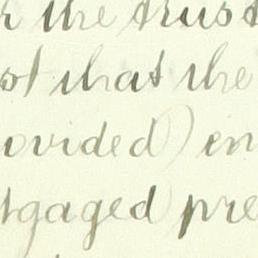 r the trust
st that the
ovided) en
tgaged pre